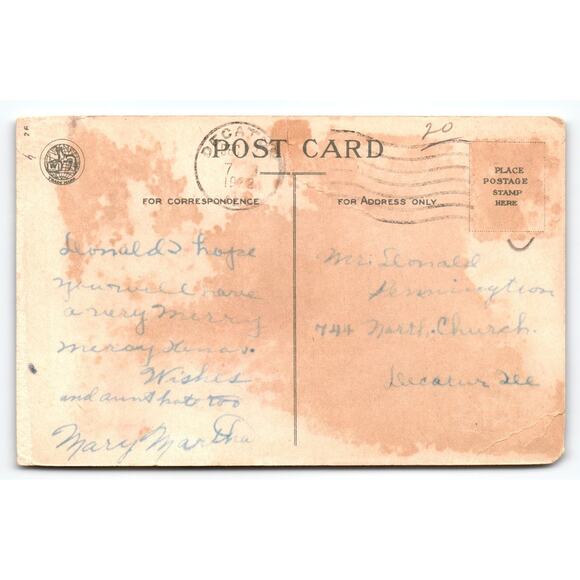 20
DECATUR
7
POST CARD
PLACE
POSTAGE
STAMP
HERE
TRADE MARK
FOR CORRESPONDENCE
FOR ADDRESS ONLY
Donald I hope
you will have
a very Merry
meray Xmas.
Wishes
and aunt kate too
Mary Martha
Mr. Donald
Pennington
744 North. Church.
Decatur Ill